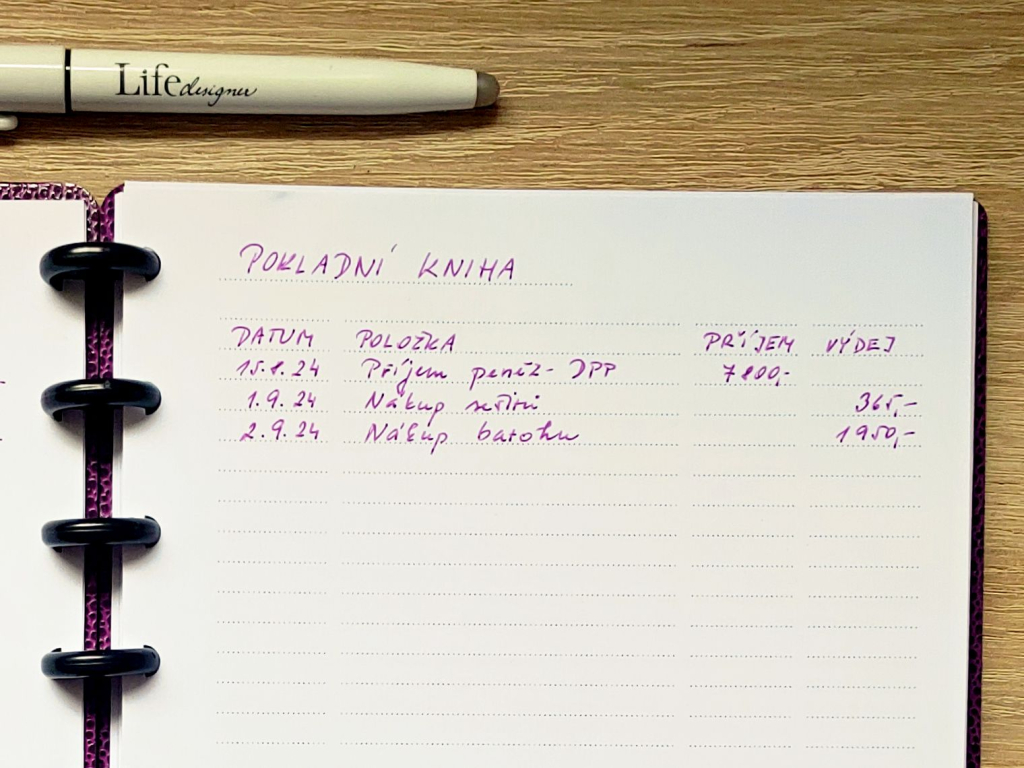 Life designer
POKLADNÍ KNIHA
DATUM POLOŽKA PŘÍJEM VÝDEJ
15.8.24 Příjem peněz - DPP 7800,-
1.9.24 Nákup sešitů 365,-
2.9.24 Nákup batohu 1950,-